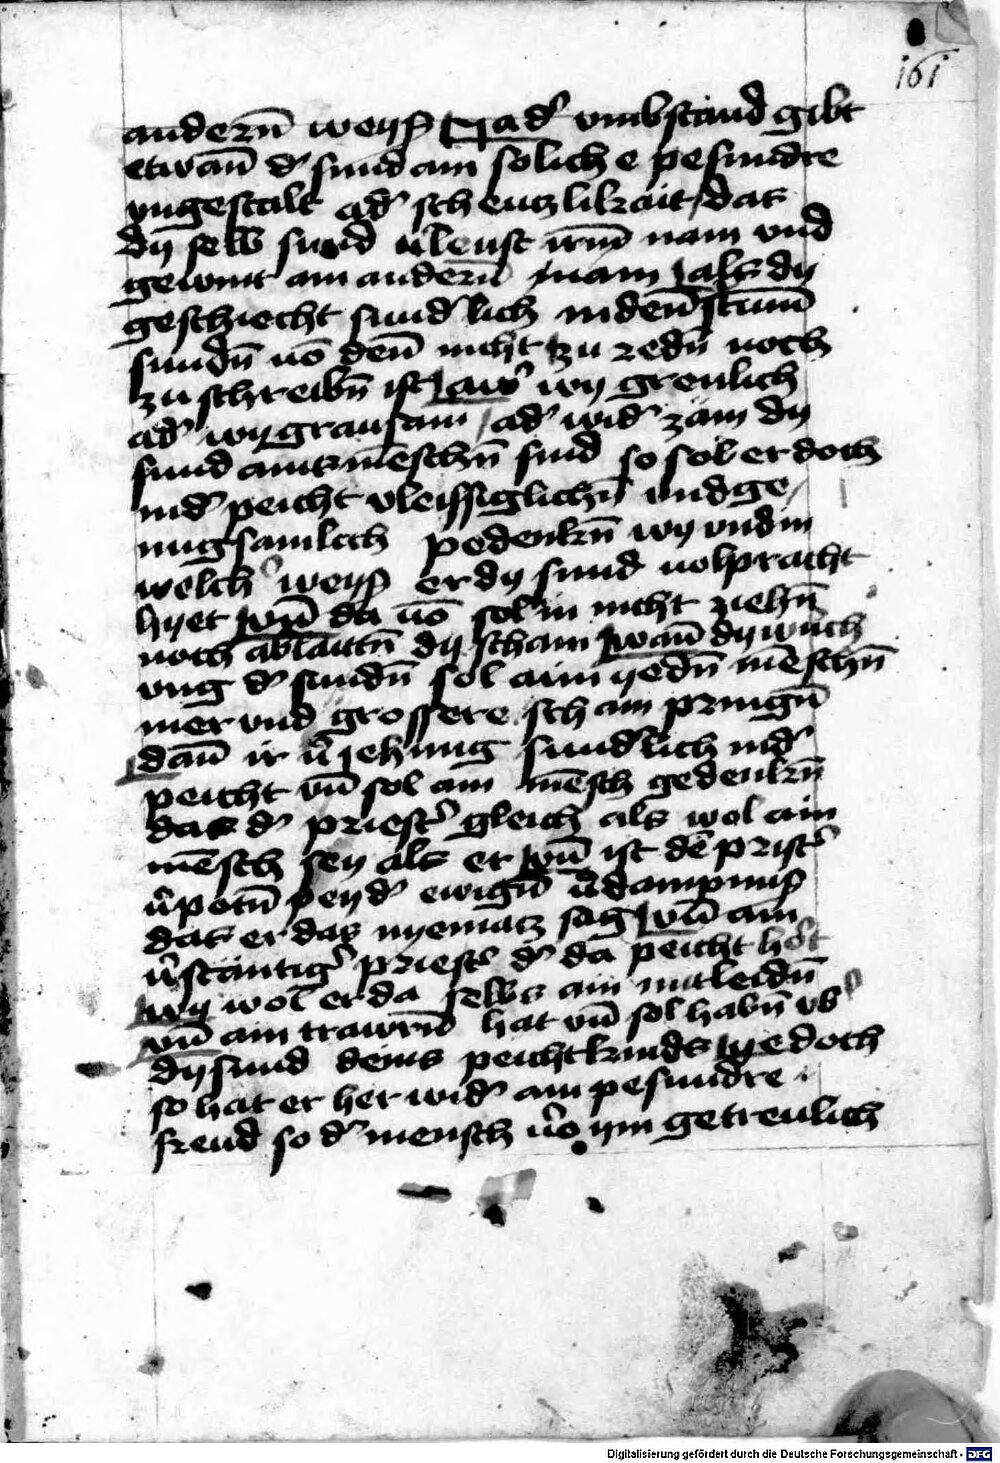 161
andern̄ weyß ad᷒ vmbstand gibt
etwan̄ d᷒ sund ain solich e pesundre
vngestalt ad᷒ scheutzlikait / das
dy selb sund vleust irn̄ nam vnd
gewint ain andern̄ nam als dy
geschiecht sund᷒lich in den̄ stum̄
sundn̄ vō den̄ nicht zu redn̄ noch
zu schreibn̄ ist aw᷒ wy greulich
ad᷒ wy grausam / ad᷒ wid᷒zäm dy
sund ains mēschn̄ sind so sol er doch
in d᷒ peicht vleissiglichn̄ vnd ge
nugsamlich pedenkn̄ wy vnd in
welch᷒ weyß er dy sund volpracht
hyet vn̄ da vō sol in nicht ziehn̄
noch ablaittn̄ dy scham wan̄ dy würch
ung d᷒ sundn̄ sol aim yedn̄ mēschn̄
mer vnd grossere scham pringn̄
dan̄ ir v᷒iehung sund᷒lich in d᷒
peicht vn̄ sol ain mēsch gedenkn̄
das d᷒ priest᷒ gleich als wol ain
mēsch sey als er vn̄ ist dē prist᷒
v᷒potn̄ pey d᷒ ewign̄ v᷒dampnuß
das er das nyematz sag vn̄ ain
v᷒stantig᷒ priest᷒ d᷒ da peicht hört
wy wol er da selbs ain mitleidn̄
vn̄ ain trawrn̄ hat vn̄ sol habn̄ vb᷒
dy sund deins peichtkinds yedoch
so hat er her wid᷒ ain pesundre
freud so d᷒ mensch v᷒o ym getreulich
Digitalisierung gefördert durch die Deutsche Forschungsgemeinschaft - DFG